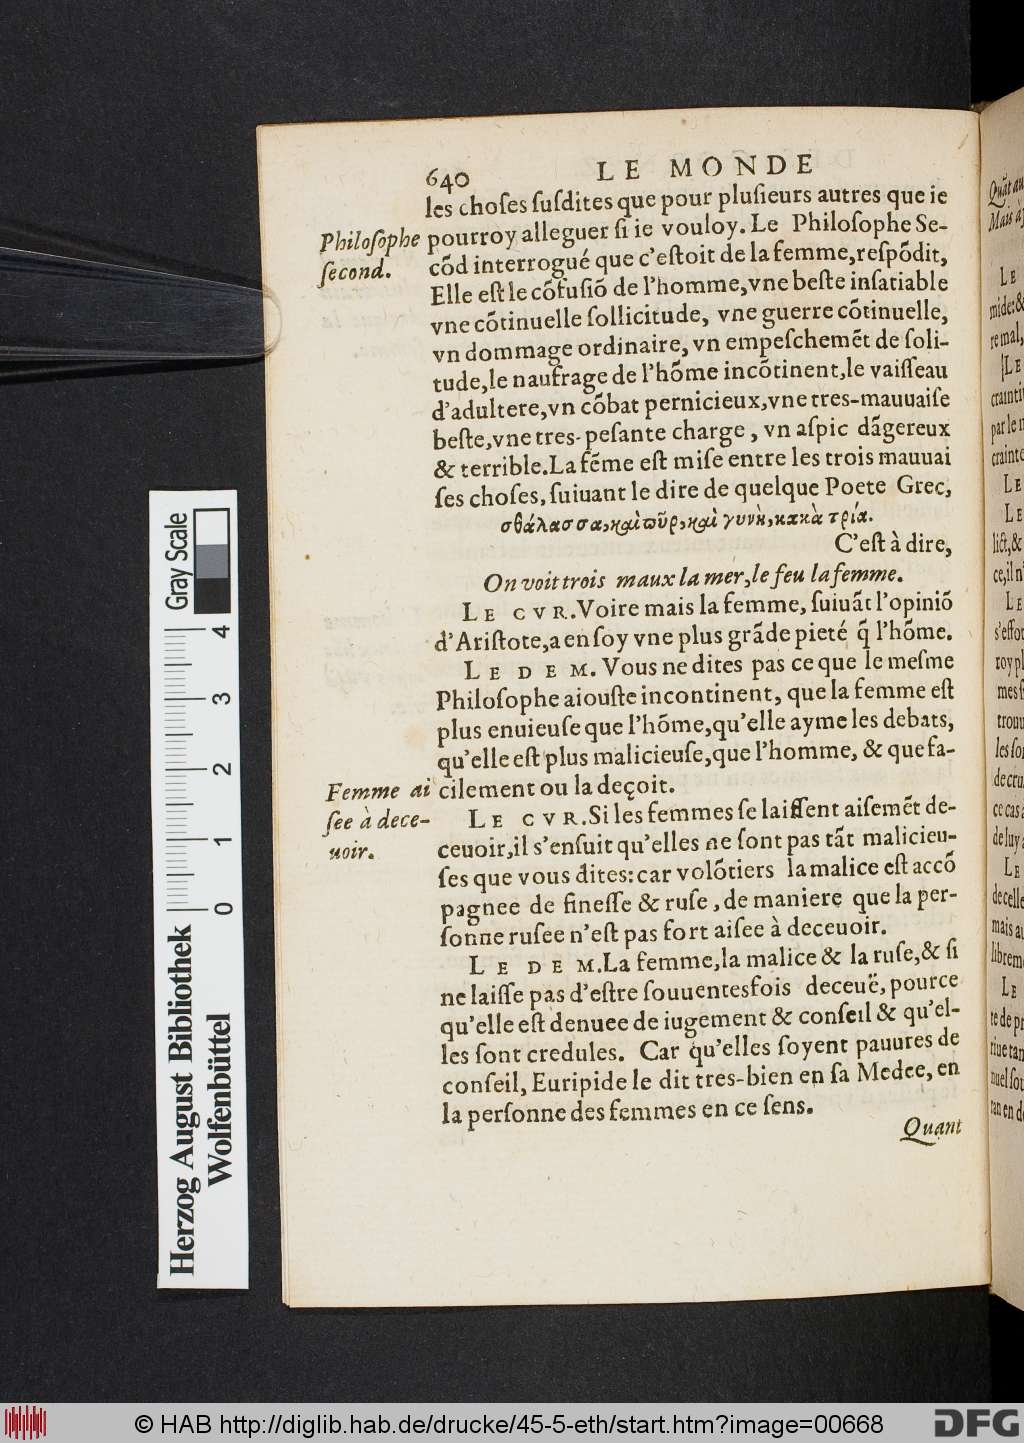 640 LE MONDE
les choſes ſuſdites que pour pluſieurs autres que ie
Philoſophe
ſecond.
pourroy alleguer ſi ie vouloy. Le Philoſophe Se-
cõd interrogué que c'eſtoit de la femme, reſpõdit,
Elle eſt le cõfuſiõ de l'homme, vne beſte inſatiable
vne cõtinuelle ſollicitude, vne guerre cõtinuelle,
vn dommage ordinaire, vn empeſchemẽt de ſoli-
tude, le naufrage de l'hõme incõtinent, le vaiſſeau
d'adultere, vn cõbat pernicieux, vne tres-mauuaiſe
beſte, vne tres-peſante charge, vn aſpic dãgereux
& terrible. La fẽme eſt miſe entre les trois mauuai
ſes choſes, ſuiuant le dire de quelque Poete Grec,
σθάλασσα, καὶ πῦρ, καὶ γυνὴ, κακὰ τρία.
C'eſt à dire,
On voit trois maux la mer, le feu la femme.
LE CVR. Voire mais la femme, ſuiuãt l'opiniõ
d'Ariſtote, a en ſoy vne plus grãde pieté q̃ l'hõme.
LE DEM. Vous ne dites pas ce que le meſme
Philoſophe aiouſte incontinent, que la femme eſt
plus enuieuſe que l'hõme, qu'elle ayme les debats,
qu'elle eſt plus malicieuſe, que l'homme, & que fa-
cilement ou la deçoit.
Femme ai
ſee à dece-
uoir.
LE CVR. Si les femmes ſe laiſſent aiſemẽt de-
ceuoir, il s'enſuit qu'elles ne ſont pas tãt malicieu-
ſes que vous dites: car volõtiers la malice eſt accõ
pagnee de fineſſe & ruſe, de maniere que la per-
ſonne ruſee n'eſt pas fort aiſee à deceuoir.
LE DEM. La femme, la malice & la ruſe, & ſi
ne laiſſe pas d'eſtre ſouuentesfois deceuë, pource
qu'elle eſt denuee de iugement & conſeil & qu'el-
les ſont credules. Car qu'elles ſoyent pauures de
conſeil, Euripide le dit tres-bien en ſa Medee, en
la perſonne des femmes en ce ſens.
Quant
Quãt au
Mais à
LE
mide: &
re mal,
LE
crainti
par le
crainte
LE
LE
lict, &
ce, il n'
LE
s'effor
roy pl
mes ſ
trouu
les ſo
de cru
ce cas a
de luy a
LE
de celle
mais au
libreme
LE
te de pr
riue tan
nuel ſou
ran en de
Gray Scale
4
3
2
1
0
Herzog August Bibliothek
Wolfenbüttel
© HAB http://diglib.hab.de/drucke/45-5-eth/start.htm?image=00668
DFG